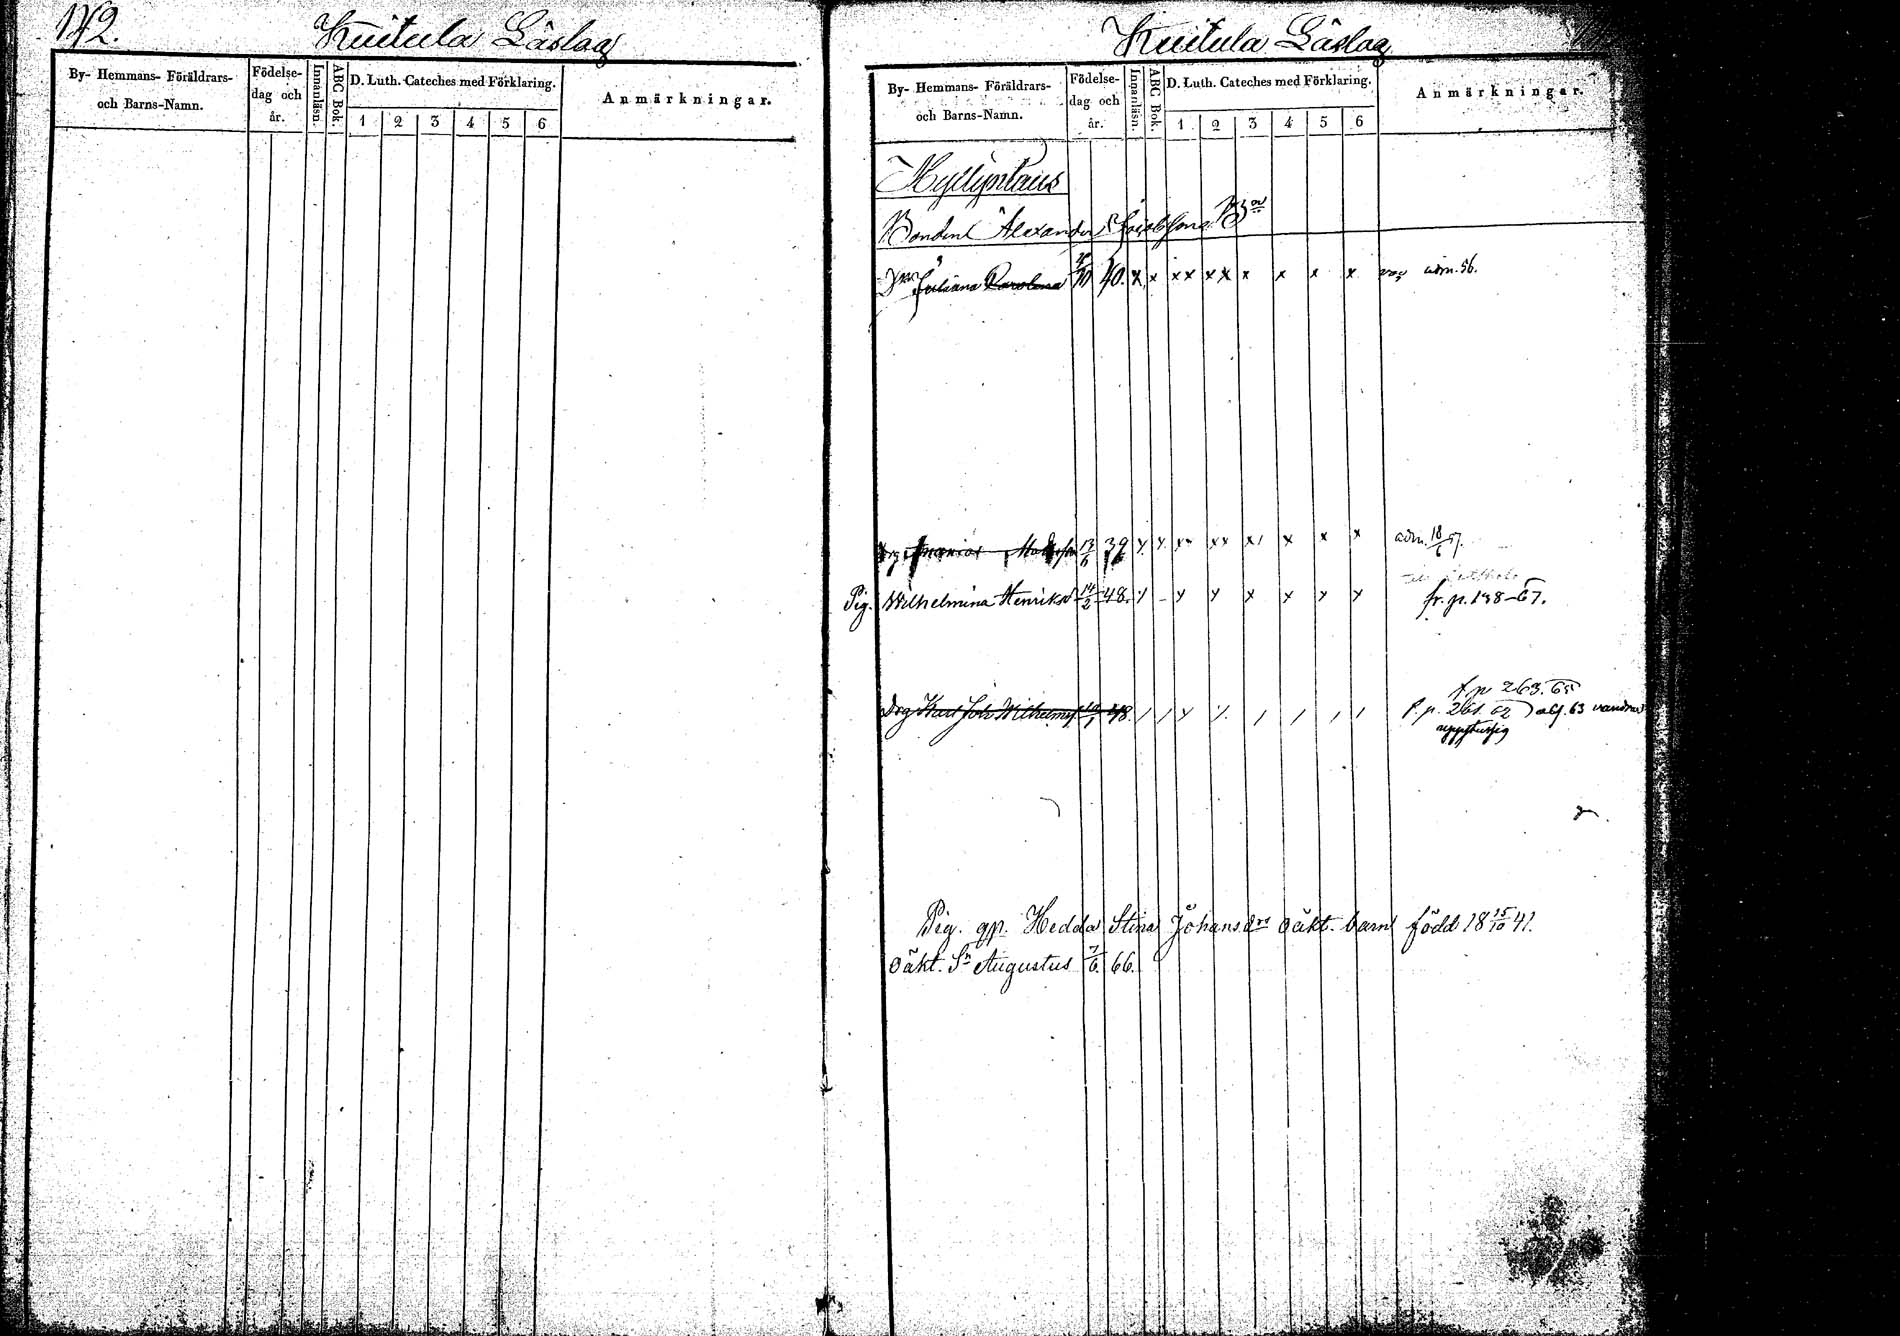 142.
Kuitula Läslag
By- Hemmans- Föräldrars-
och Barns-Namn.
Födelse-
dag och
år.
Innanläsn.
ABC Bok.
D. Luth. Cateches med Förklaring.
1 2 3 4 5 6
Anmärkningar.
Kuitula Läslag
By- Hemmans- Föräldrars-
och Barns-Namn.
Födelse-
dag och
år.
Innanläsn.
ABC Bok.
D. Luth. Cateches med Förklaring.
1 2 3 4 5 6
Anmärkningar.
Bonden Alexander
Juliana Karolina 40. x x xx xx x x x x adm. 56.
13/6 39 x x x x x adm. 18/6 57.
Pig. Wilhelmina Henriksd 14/2 48. fr. p. 138-67.
t p 263. 65
Drg Karl Joh Wilhelmsf 48. f. p. 261. 62 alf. 63
Pig. gp. Hedda Stina Johansdrs oäkt. barn född 18 15/10 41.
Oäkt. Sn Augustus 7/6. 66.